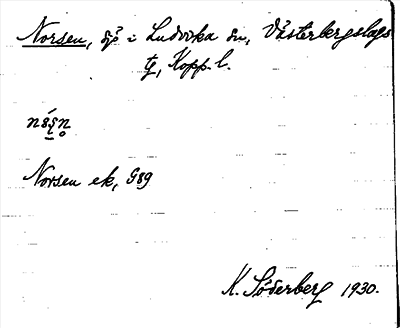 Norsen, sjö i Ludvika sn, Västerbergslags
tg, Kopp. l.
Norsen ek, G89
K. Söderberg 1930.